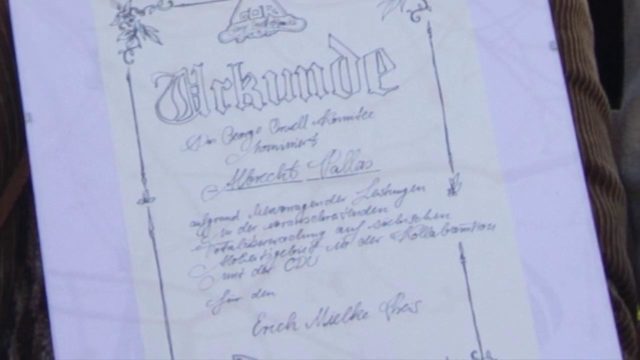 Urkunde
Das George Orwell Kommitee
nominiert
Albrecht Pallas
aufgrund hervorragender Leistungen
in der voranschreitenden
Totalüberwachung auf sächsischem
Hoheitsgebiet in der Kollaboration
mit der CDU
für den
Erich Mielke Preis